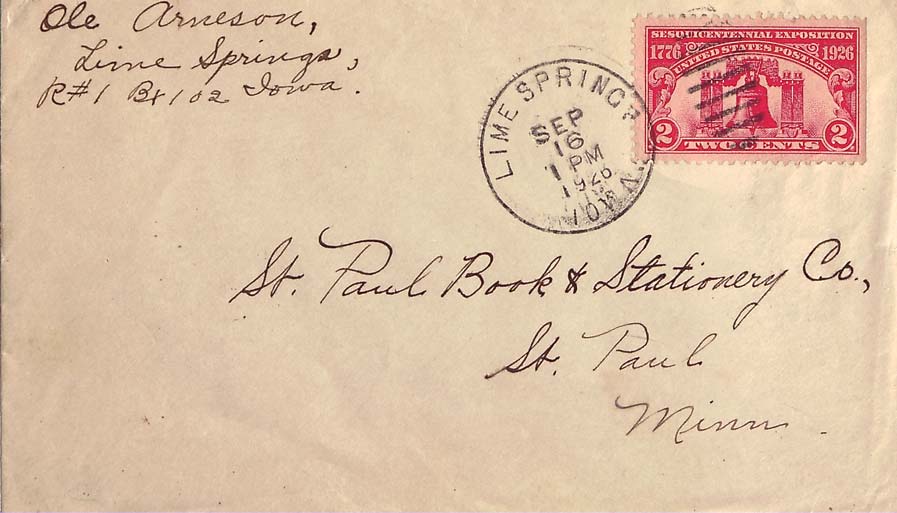 Ole Arneson,
Lime Springs,
R#1 Bx 102 Iowa.
LIME SPRINGS
IOWA
SEP
16
1 PM
1926
SESQUICENTENNIAL EXPOSITION
1776 UNITED STATES POSTAGE 1926
2 TWO CENTS 2
St. Paul Book & Stationery Co.,
St. Paul
Minn.